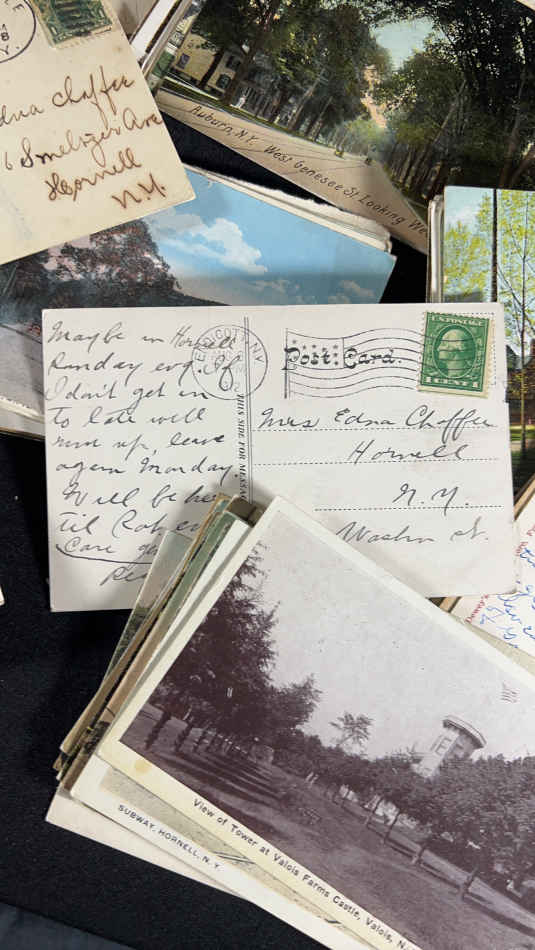 N.Y.
dna Chaffer
6 Smelzer Ave
Hornell
N.Y.
Auburn, N.Y. West Genesee St. Looking We
Maybe in Hornell
Sunday evg. If
I don't get in
to late will
run up, leave
again Monday.
Will be he
til
Care
ENDICOTT, N.Y.
Post Card.
THIS SIDE FOR MESSAG
U.S. POSTAGE
1 CENT 1
Mrs Edna Chaffer
Hornell
N.Y.
Washn St.
SUBWAY, HORNELL, N.Y.
View of Tower at Valois Farms Castle, Valois, N.